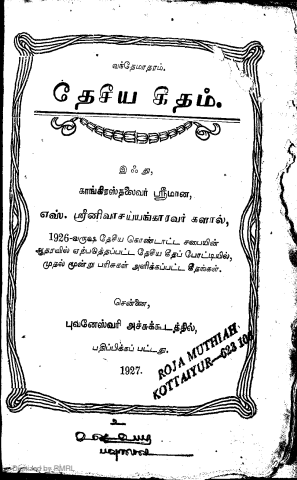 வந்தேமாதரம்.
தேசிய கீதம்.
இஃது,
காங்கிரஸ்தலைவர் ஸ்ரீமான்,
எஸ். ஸ்ரீனிவாசய்யங்காரவர்களால்,
1926-வருஷ தேசிய கொண்டாட்ட சபையின்
ஆதரவில் ஏற்படுத்தப்பட்ட தேசிய கீதப் போட்டியில்,
முதல் மூன்று பரிசுகள் அளிக்கப்பட்ட கீதங்கள்.
சென்னை,
புவனேஸ்வரி அச்சுக்கூடத்தில்,
பதிப்பிக்கப் பட்டது.
1927.
ROJA MUTHIAH
KOTTAIYUR—623 106
உ
Digitized by RMRL